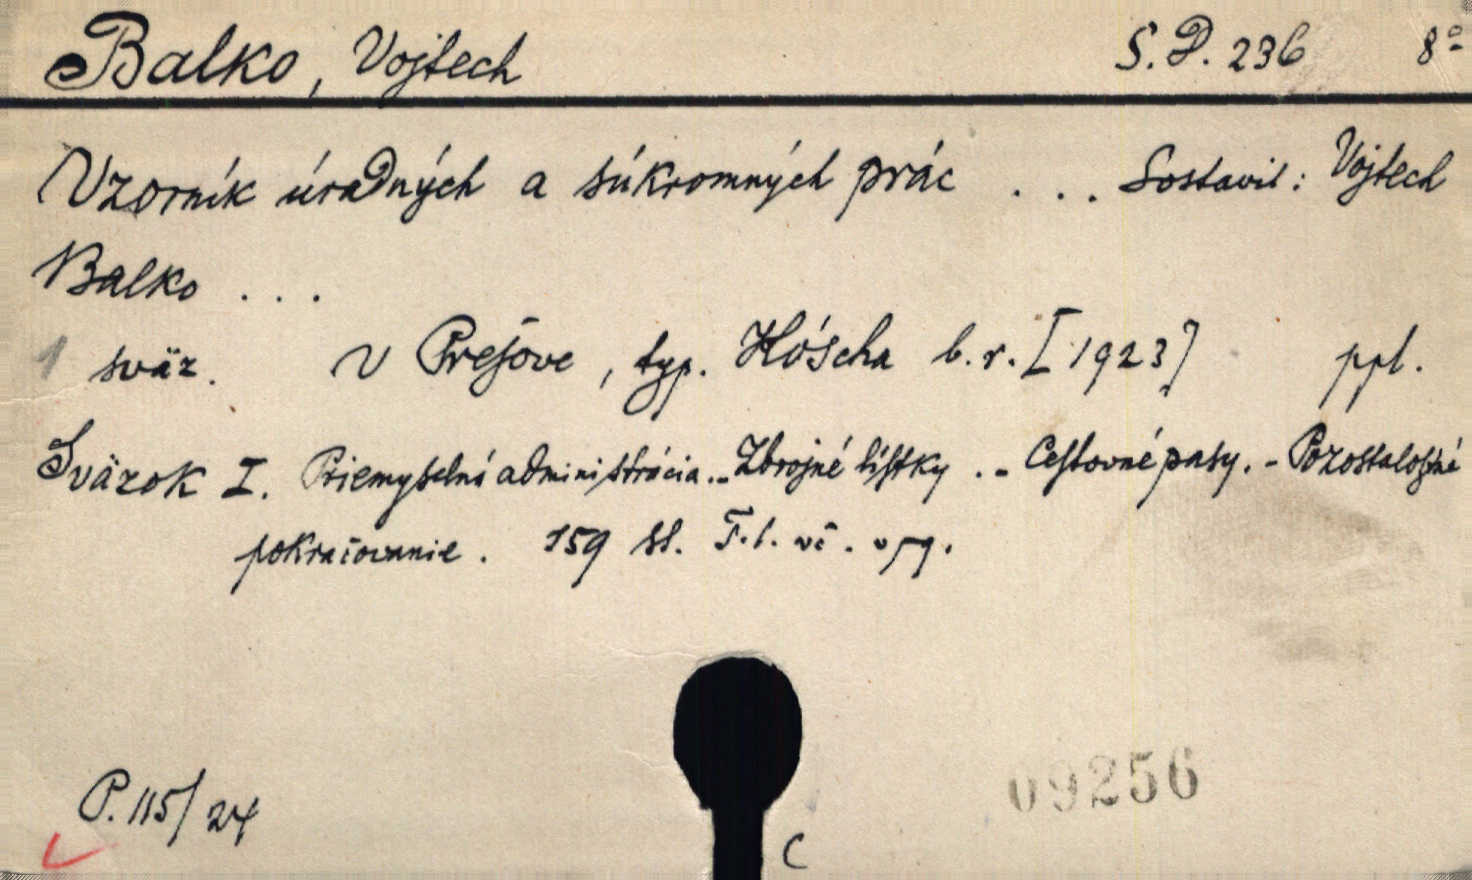 Balko, Vojtech S. D. 236 8°
Vzorník úradných a súkromných prác ... Sostavil: Vojtech
Balko ...
1 sväz. V Prešove, typ. Kóscha b. r. [1923] ppl.
Sväzok I. Priemyselná administrácia. - Zbrojné lístky. - Cestovné pasy. - Pozostalostné
pokračovanie. 159 st. T. l. vč.
P. 115/24
09256
C